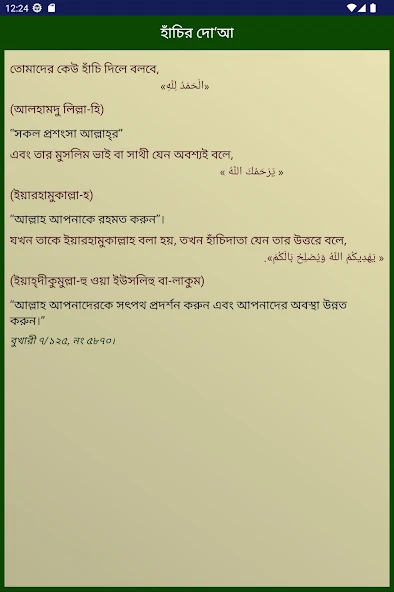 12:24
হাঁচির দো‘আ
তোমাদের কেউ হাঁচি দিলে বলবে,
«الْحَمْدُ لِلَّهِ»
(আলহামদু লিল্লা-হি)
“সকল প্রশংসা আল্লাহ্‌র”
এবং তার মুসলিম ভাই বা সাথী যেন অবশ্যই বলে,
« يَرْحَمُكَ اللَّهُ »
(ইয়ারহামুকাল্লা-হ)
“আল্লাহ আপনাকে রহমত করুন”।
যখন তাকে ইয়ারহামুকাল্লাহ বলা হয়, তখন হাঁচিদাতা যেন তার উত্তরে বলে,
« يَهْدِيكُمُ اللَّهُ وَيُصْلِحُ بَالَكُمْ».
(ইয়াহ্‌দীকুমুল্লা-হু ওয়া ইউসলিহু বা-লাকুম)
“আল্লাহ আপনাদেরকে সৎপথ প্রদর্শন করুন এবং আপনাদের অবস্থা উন্নত
করুন।”
বুখারী ৭/১২৫, নং ৫৮৭০।